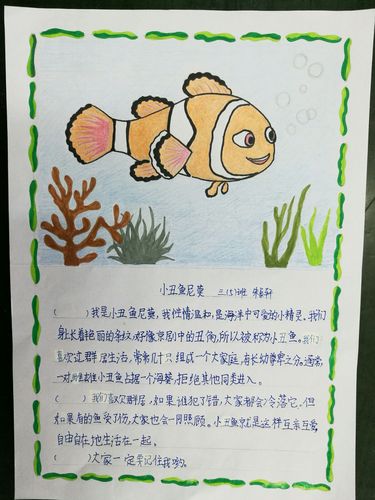 小丑鱼尼莫 三(5)班
( )我是小丑鱼尼莫,我性情温和,是海洋中可爱的小精灵。我们
身长着艳丽的条纹,好像京剧中的丑角,所以被称为小丑鱼。我们
喜欢过群居生活,常常几十只组成一个大家庭,有长幼尊卑之分。通常,
一对雌雄小丑鱼占据一个海葵,拒绝其他同类进入。
( )我们喜欢群居,如果谁犯了错,大家都会冷落它,但
如果有的鱼受了伤,大家也会一同照顾。小丑鱼就是这样互亲互爱,
自由自在地生活在一起。
( )大家一定要记住我哟。